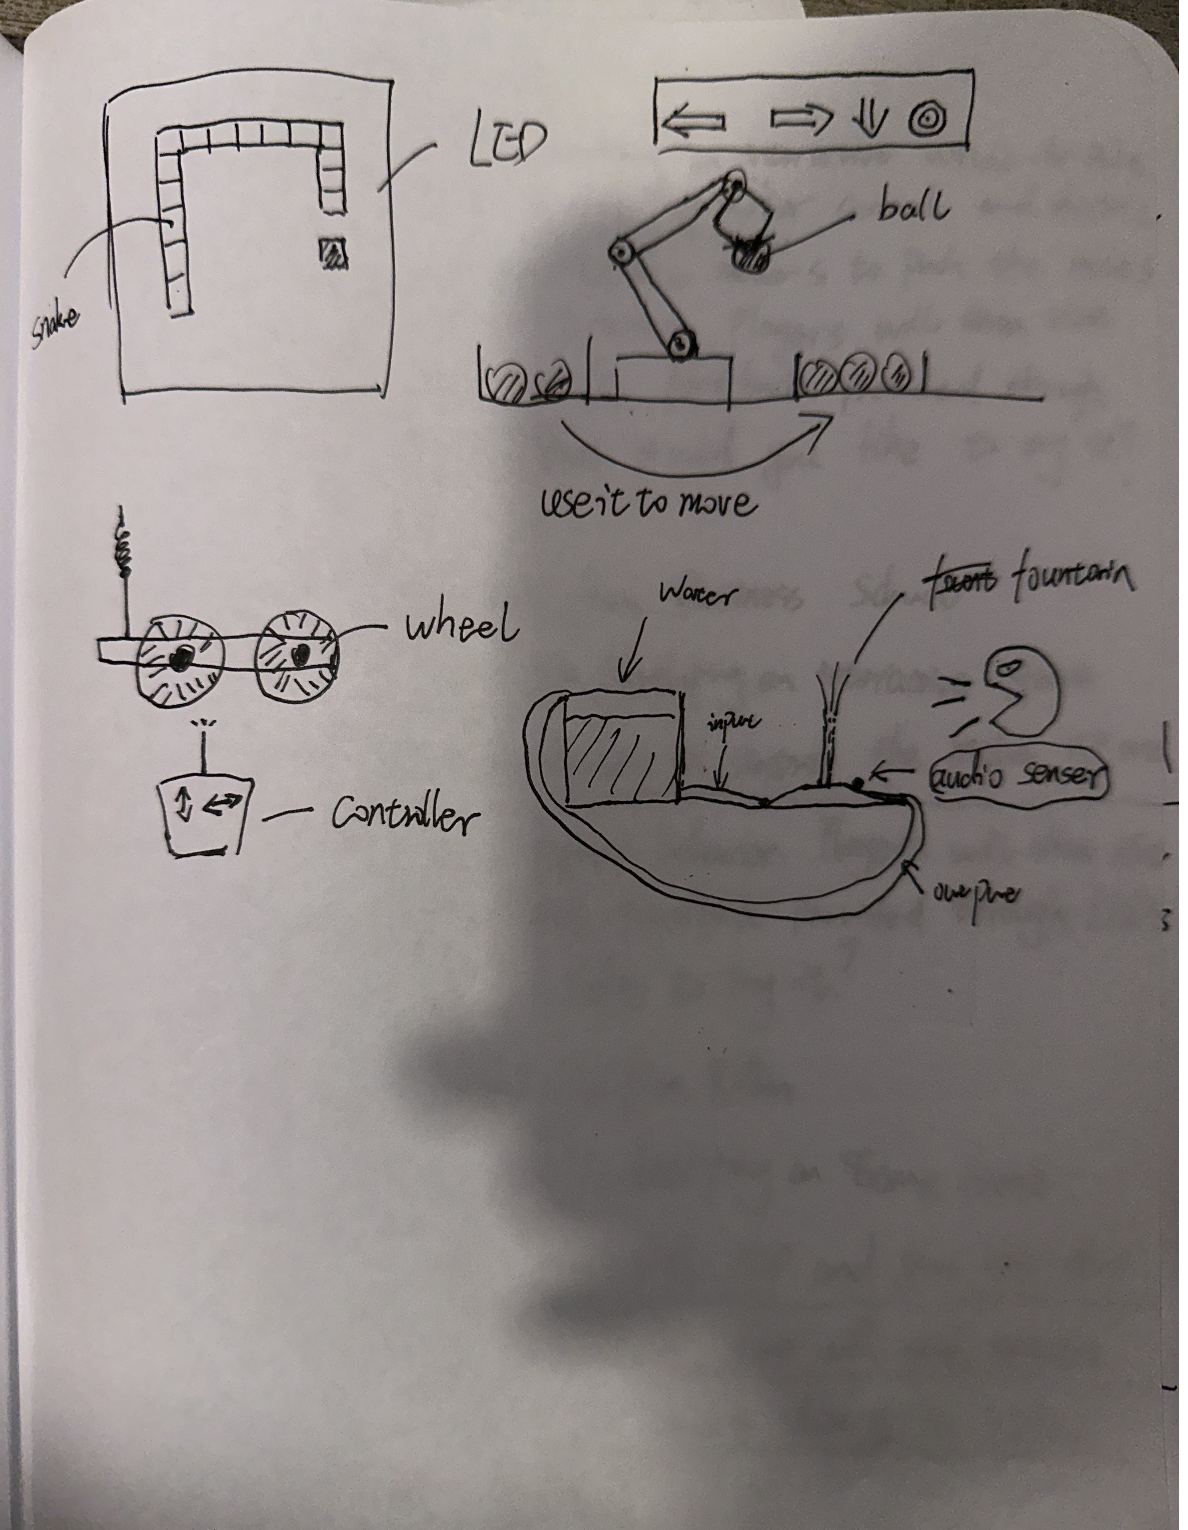 LED
snake
ball
use it to move
wheel
controller
water
fount fountain
input
audio senser
output